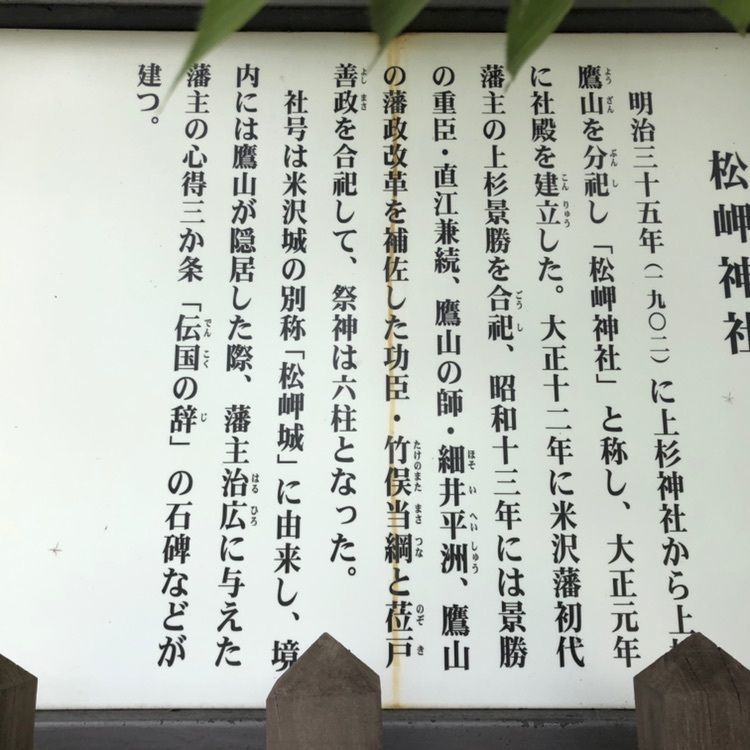 松岬神社
明治三十五年(一九〇二)に上杉神社から上
鷹山を分祀し「松岬神社」と称し、大正元年
に社殿を建立した。大正十二年に米沢藩初代
藩主の上杉景勝を合祀、昭和十三年には景勝
の重臣・直江兼続、鷹山の師・細井平洲、鷹山
の藩政改革を補佐した功臣・竹俣当綱と莅戸
善政を合祀して、祭神は六柱となった。
社号は米沢城の別称「松岬城」に由来し、境
内には鷹山が隠居した際、藩主治広に与えた
藩主の心得三か条「伝国の辞」の石碑などが
建つ。